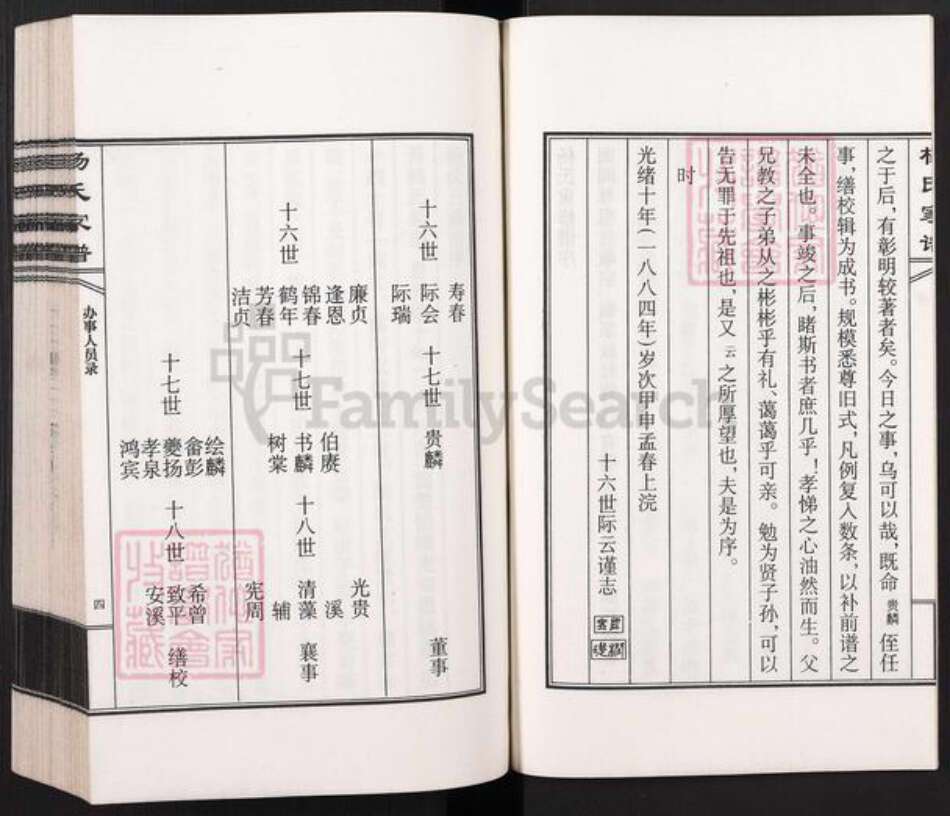 杨氏家谱
之于后，有彰明较著者矣。今日之事，乌可以哉，既命贵麟侄任
事，缮校辑为成书。规模悉尊旧式，凡例复入数条，以补前谱之
未全也。事竣之后，睹斯书者庶几乎！孝悌之心油然而生。父
兄教之子弟从之彬彬乎有礼、蔼蔼乎可亲。勉为贤子孙，可以
告无罪于先祖也，是又云之所厚望也，夫是为序。
时
光绪十年（一八八四年）岁次甲申孟春上浣
十六世际云谨志
十六世
寿春
际会
际瑞
十七世
贵麟
董事
十六世
廉贞
逢恩
锦春
鹤年
芳春
洁贞
十七世
伯赓
书麟
树棠
十八世
光贵
溪
清藻
辅
宪周
襄事
十七世
绘麟
畲彭
夔扬
孝泉
鸿宾
十八世
希曾
致平
安溪
缮校
杨氏家谱
办事人员录
四
FamilySearch